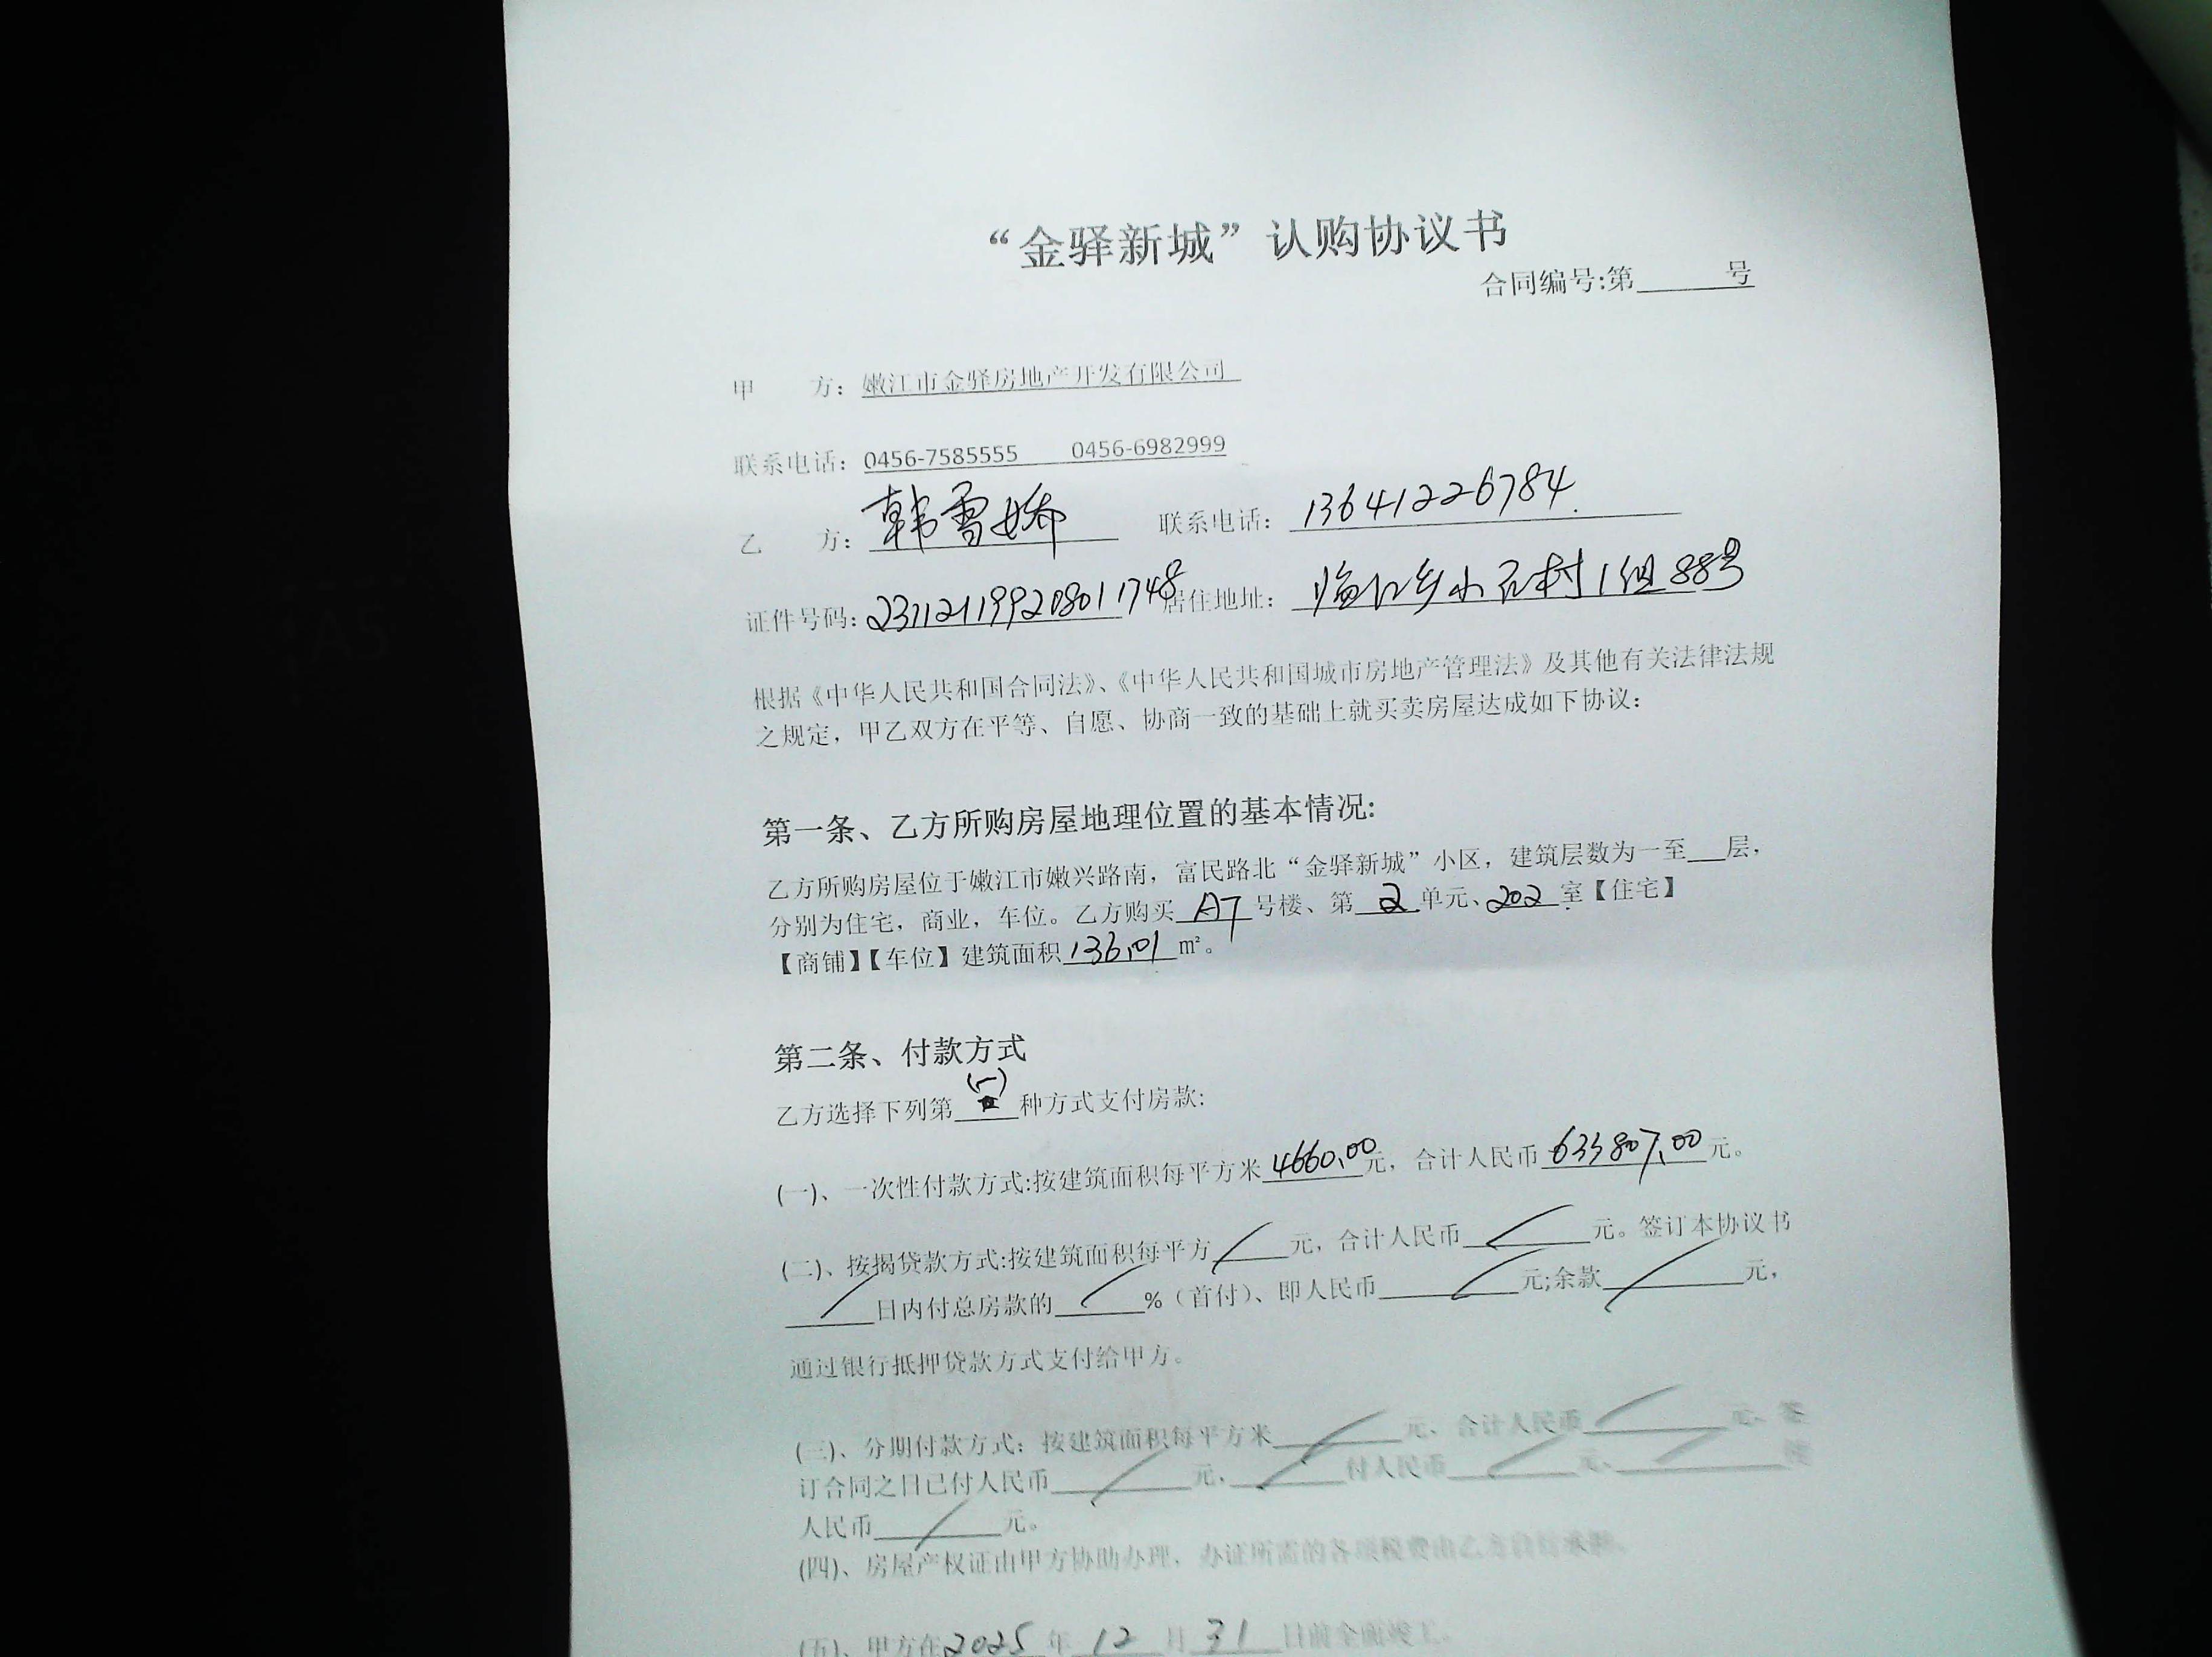 “金驿新城”认购协议书
合同编号:第______号
甲 方：嫩江市金驿房地产开发有限公司
联系电话：0456-7585555 0456-6982999
乙 方：韩雪娇 联系电话：13641226784.
证件号码：231121199208011748 居住地址：临江乡小石村1组88号
根据《中华人民共和国合同法》、《中华人民共和国城市房地产管理法》及其他有关法律法规
之规定，甲乙双方在平等、自愿、协商一致的基础上就买卖房屋达成如下协议：
第一条、乙方所购房屋地理位置的基本情况:
乙方所购房屋位于嫩江市嫩兴路南，富民路北“金驿新城”小区，建筑层数为一至___层，
分别为住宅，商业，车位。乙方购买 A7 号楼、第 2 单元、202 室【住宅】
【商铺】【车位】建筑面积 136.01 ㎡。
第二条、付款方式
乙方选择下列第 (一) 种方式支付房款:
(一)、一次性付款方式:按建筑面积每平方米 4660.00 元，合计人民币 633807.00 元。
(二)、按揭贷款方式:按建筑面积每平方 / 元，合计人民币 / 元。签订本协议书
/ 日内付总房款的 / %（首付）、即人民币 / 元;余款 / 元，
通过银行抵押贷款方式支付给甲方。
(三)、分期付款方式：按建筑面积每平方米 / 元、合计人民币 / 元、签
订合同之日已付人民币 / 元， / 付人民币 / 元、 /
人民币 / 元。
(四)、房屋产权证由甲方协助办理，办证所需的各项税费由乙方自行承担。
(五)、甲方在 2025 年 12 月 31 日前全面竣工。